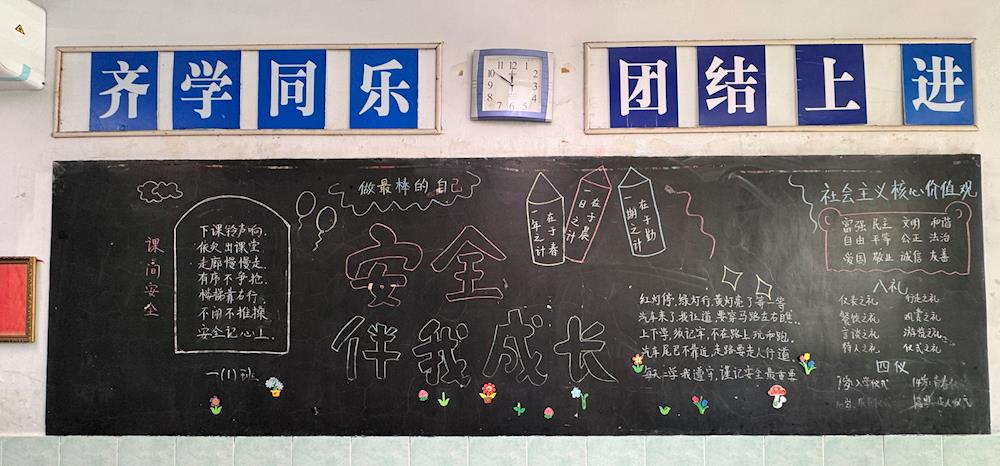 齐学同乐
团结上进
做最棒的自己
课间安全
下课铃声响,
依次出课堂
走廊慢慢走,
有序不争抢.
楼梯靠右行,
不闹不推搡
安全记心上.
一(1)班
安全
伴我成长
一年之计
在于春
一日之计
在于晨
一期之计
在于勤
红灯停,绿灯行,黄灯亮了等一等
汽车来了我让道,要穿马路左右瞧
上下学,须记牢,不在路上玩和跑
汽车尾巴不靠近,走路要走人行道
谨记安全最重要
社会主义核心价值观
富强 民主 文明 和谐
自由 平等 公正 法治
爱国 敬业 诚信 友善
八礼
仪表之礼 行走之礼
餐饮之礼 观赏之礼
言谈之礼 游览之礼
待人之礼 仪式之礼
四仪
7岁:入学仪式